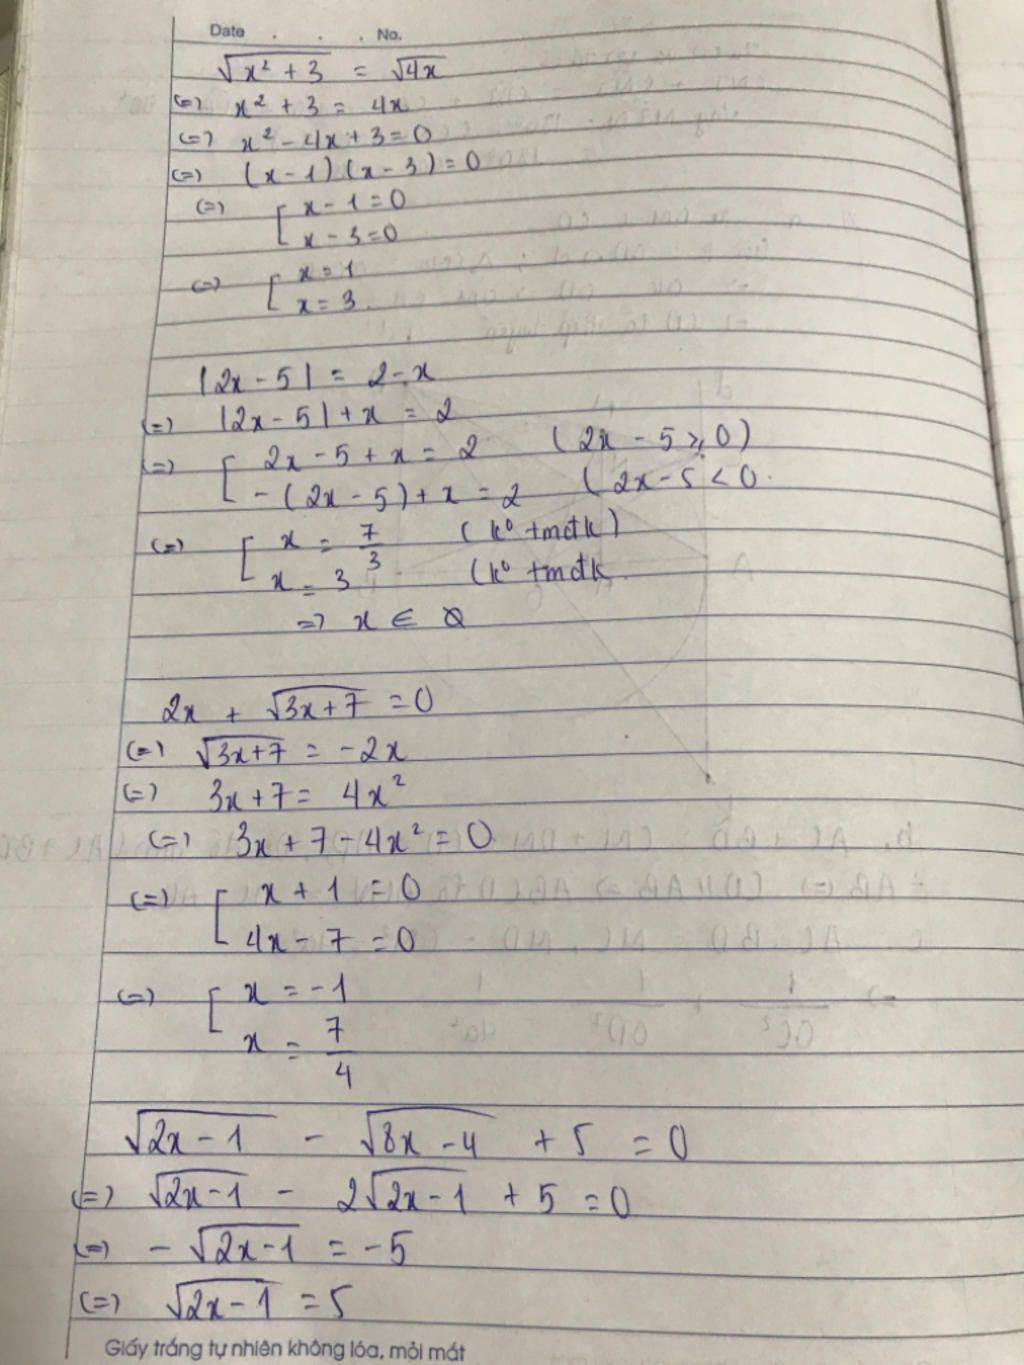 Date . . . No.
√(x² + 3) = √(4x)
(=) x² + 3 = 4x
(=) x² - 4x + 3 = 0
(=) (x - 1)(x - 3) = 0
(=) [ x - 1 = 0
x - 3 = 0
(=) [ x = 1
x = 3
|2x - 5| = 2 - x
(=) |2x - 5| + x = 2
(=) [ 2x - 5 + x = 2 (2x - 5 ≥ 0)
-(2x - 5) + x = 2 (2x - 5 < 0
(=) [ x = 7/3 (k⁰ +mđk)
x = 3 (k⁰ +mđk
=) x ∈ ∅
2x + √(3x + 7) = 0
(=) √(3x + 7) = -2x
(=) 3x + 7 = 4x²
(=) 3x + 7 - 4x² = 0
(=) [ x + 1 = 0
4x - 7 = 0
(=) [ x = -1
x = 7/4
√(2x - 1) - √(8x - 4) + 5 = 0
(=) √(2x - 1) - 2√(2x - 1) + 5 = 0
(=) - √(2x - 1) = -5
(=) √(2x - 1) = 5
Giấy trắng tự nhiên không lóa, mỏi mắt